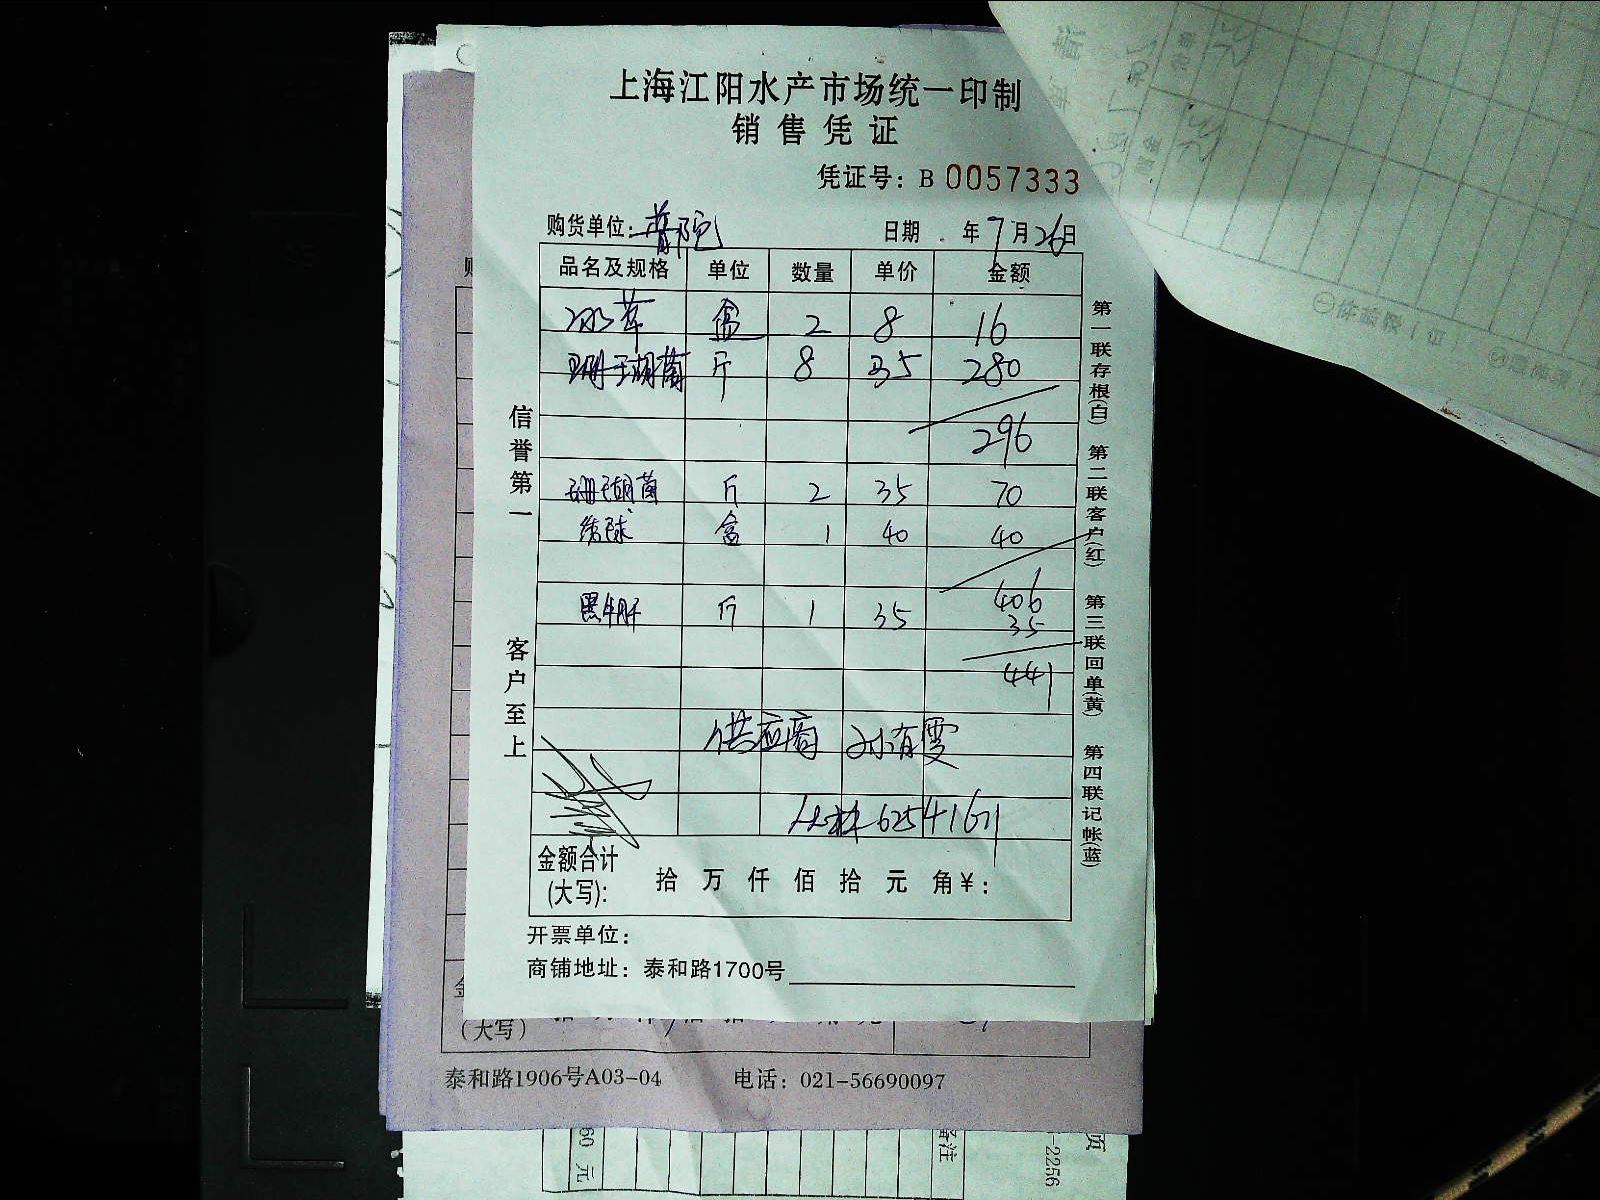 上海江阳水产市场统一印制
销售凭证
凭证号：B 0057333
购货单位：普陀 日期 年7月26日
品名及规格 单位 数量 单价 金额
冰草 盒 2 8 16
珊瑚菌 斤 8 35 280
296
珊瑚菌 斤 2 35 70
绣球 盒 1 40 40
406
黑牛肝 斤 1 35 35
441
供应商 孙有雯
62541671
金额合计
(大写)： 拾 万 仟 佰 拾 元 角¥：
开票单位：
商铺地址：泰和路1700号
信誉第一 客户至上
第一联存根(白) 第二联客户(红) 第三联回单(黄) 第四联记帐(蓝)
（大写）
泰和路1906号A03-04 电话：021-56690097
60 元
备注
-2256
页